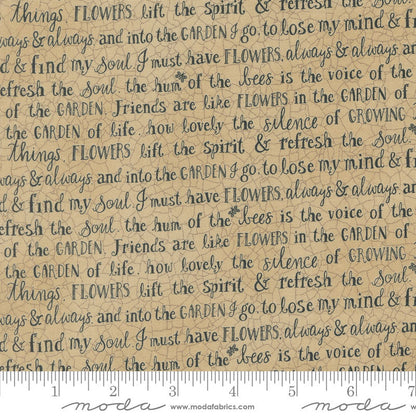 things, FLOWERS lift the Spirit & refresh the Soul.
always & always and into the GARDEN I go, to lose my mind &
d & find my Soul, I must have FLOWERS, always & always an
refresh the Soul. the hum of the bees is the voice of the
of the GARDEN. Friends are like FLOWERS in the GARDEN of
the GARDEN of life. how lovely the silence of GROWING
things, FLOWERS lift the Spirit & refresh the Soul.
always & always and into the GARDEN I go, to lose my mind &
d & find my Soul, I must have FLOWERS, always & always a
refresh the Soul. the hum of the bees is the voice of the
of the GARDEN. Friends are like FLOWERS in the GARDEN of
the GARDEN of life. how lovely the silence of GROWING
things, FLOWERS lift the Spirit & refresh the Soul.
always & always and into the GARDEN I go, to lose my mind &
d & find my Soul, I must have FLOWERS, always & always
refresh the Soul. the hum of the bees is the voice of the
1 2 3 4 5 6 7
moda www.modafabrics.com moda